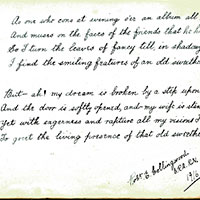 As one who cons at evening o'er an album all
And muses on the faces of the friends that he h
So I turn the leaves of fancy till, in shadow
I find the smiling features of an old sweethe
But - ah! my dream is broken by a step upon
And the door is softly opened, and - my wife is stan
Yet with eagerness and rapture all my visions I
To greet the living presence of that old sweethe
Robt G. Collingwood
R.E.
1916